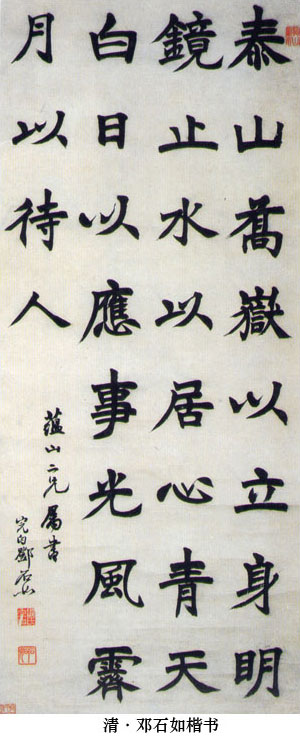 泰山喬嶽以立身明
鏡止水以居心青天
白日以應事光風霽
月以待人
蘊山二兄屬書
完白鄧石如
清·邓石如楷书